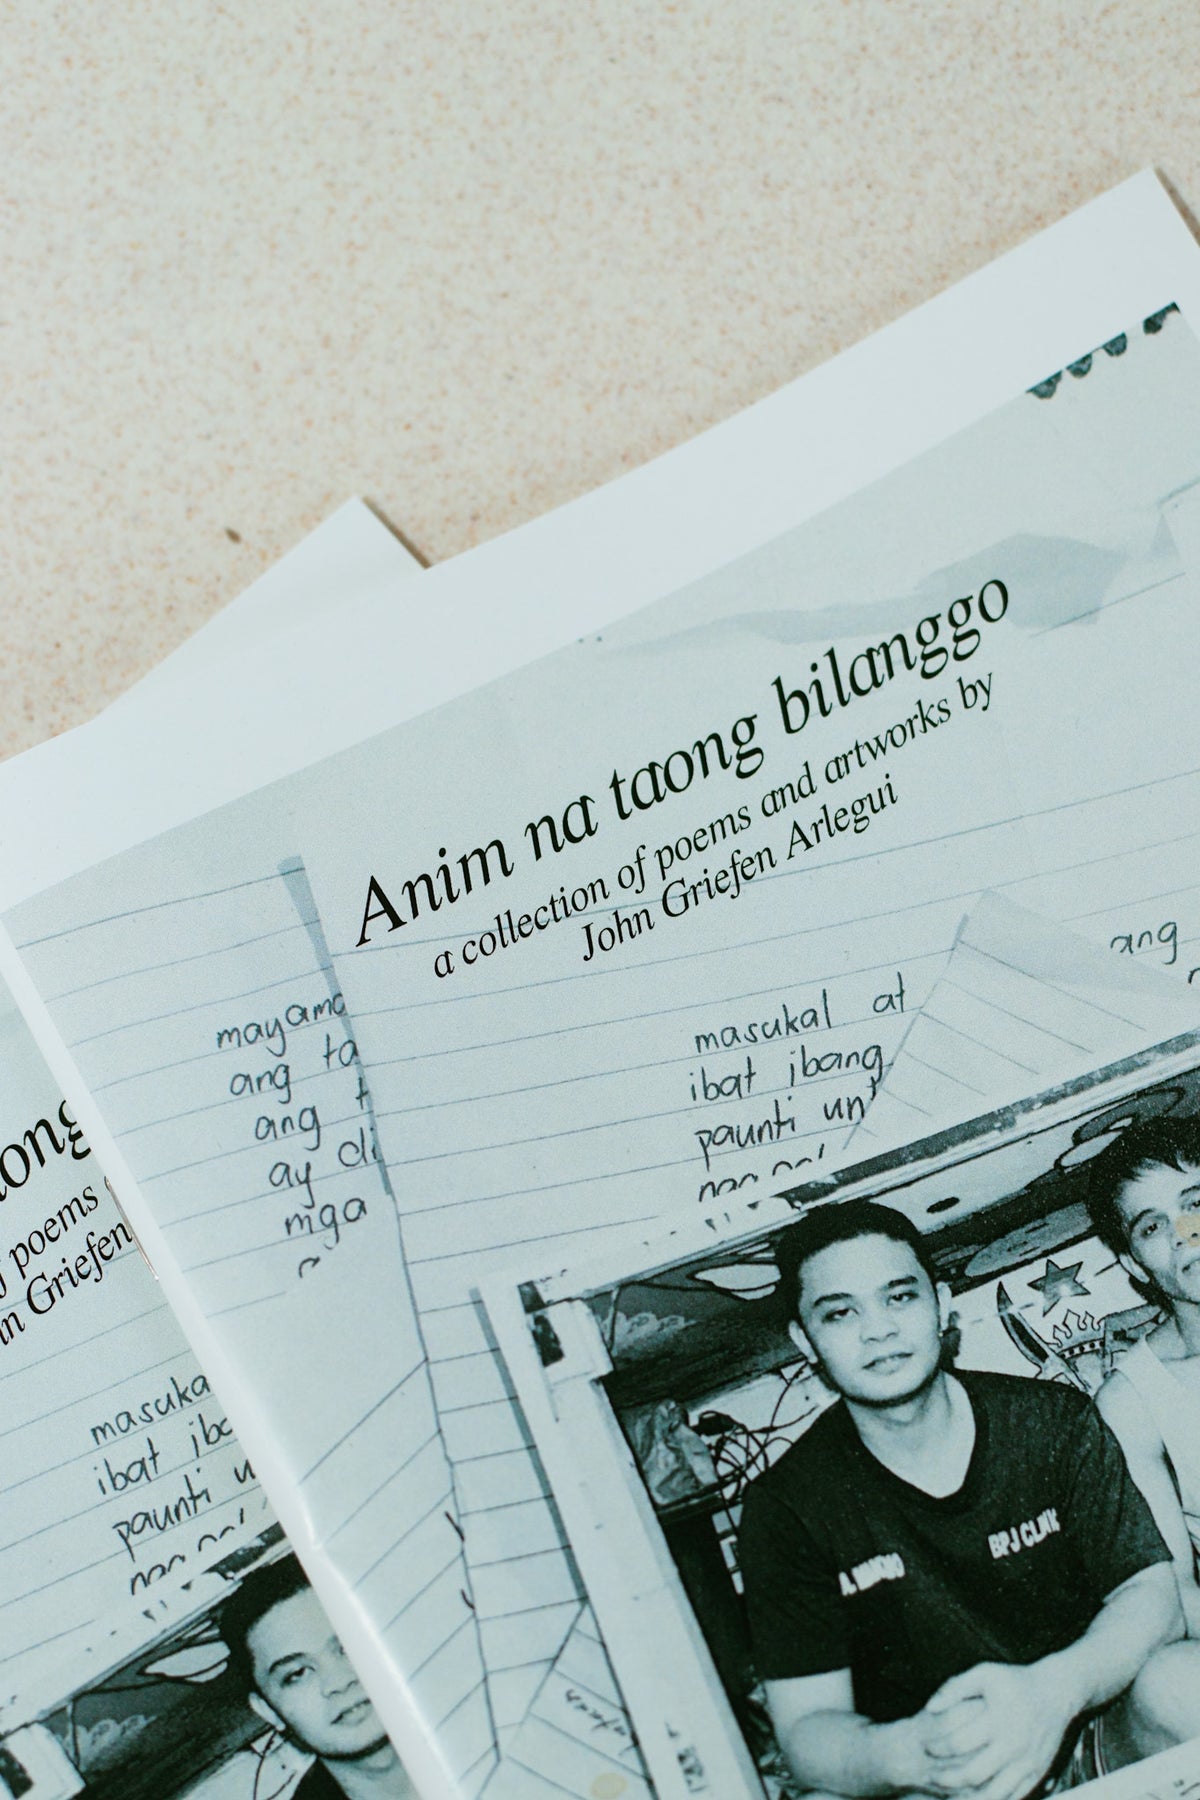 Anim na taong bilanggo
a collection of poems and artworks by
John Griefen Arlegui
ang
mayama
ang ta
ang t
ay di
mga
masukal at
ibat ibang
paunti un
BPJ CLINIC
poems
Griefen
masuka
ibat iba
paunti u